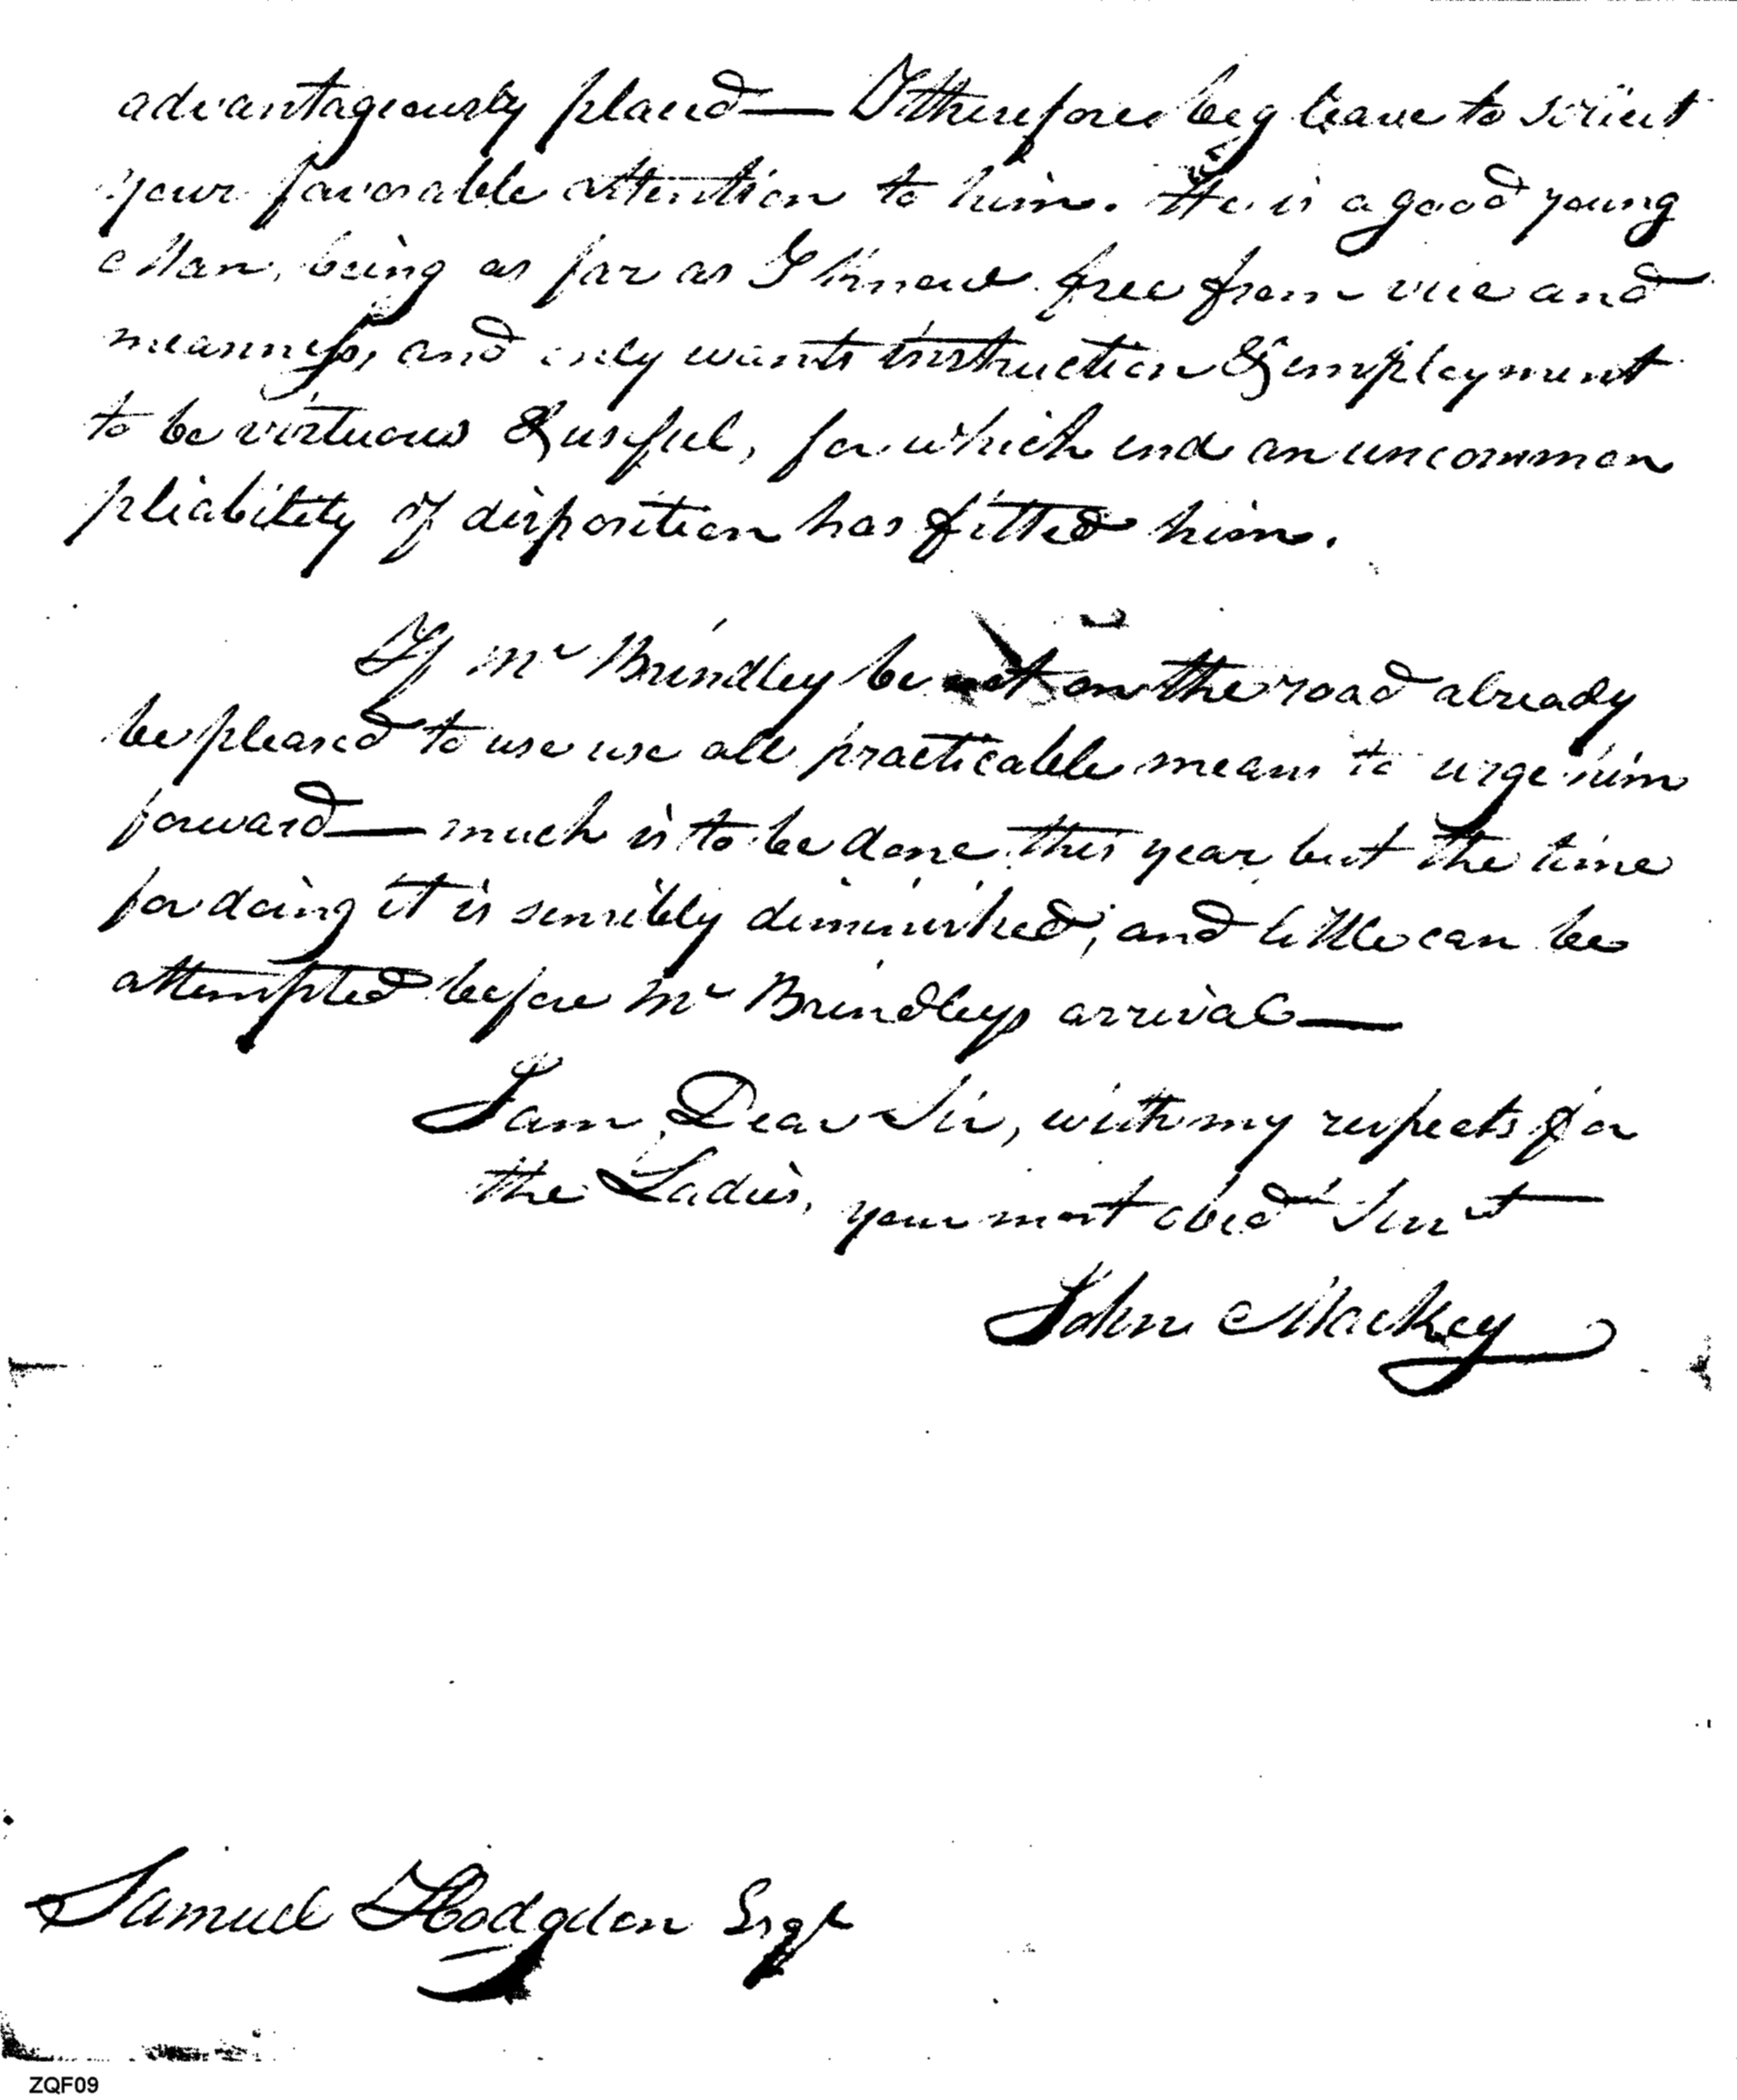 advantageously placed — I therefore beg leave to solicit
your favorable attention to him. He is a good young
Man, being as far as I know free from vice and
meanness, and only wants instruction & employment
to be virtuous & useful, for which end an uncommon
pliability of disposition has fitted him.
If Mr Brindley be not on the road already
be pleased to use use all practicable means to urge him
forward — much is to be done this year, but the time
for doing it is sensibly diminished, and little can be
attempted before Mr Brindleys arrival —
I am, Dear Sir, with my respects for
the Ladies, your most obed Servt
John Mackey
Samuel Hodgdon Esqr
ZQF09